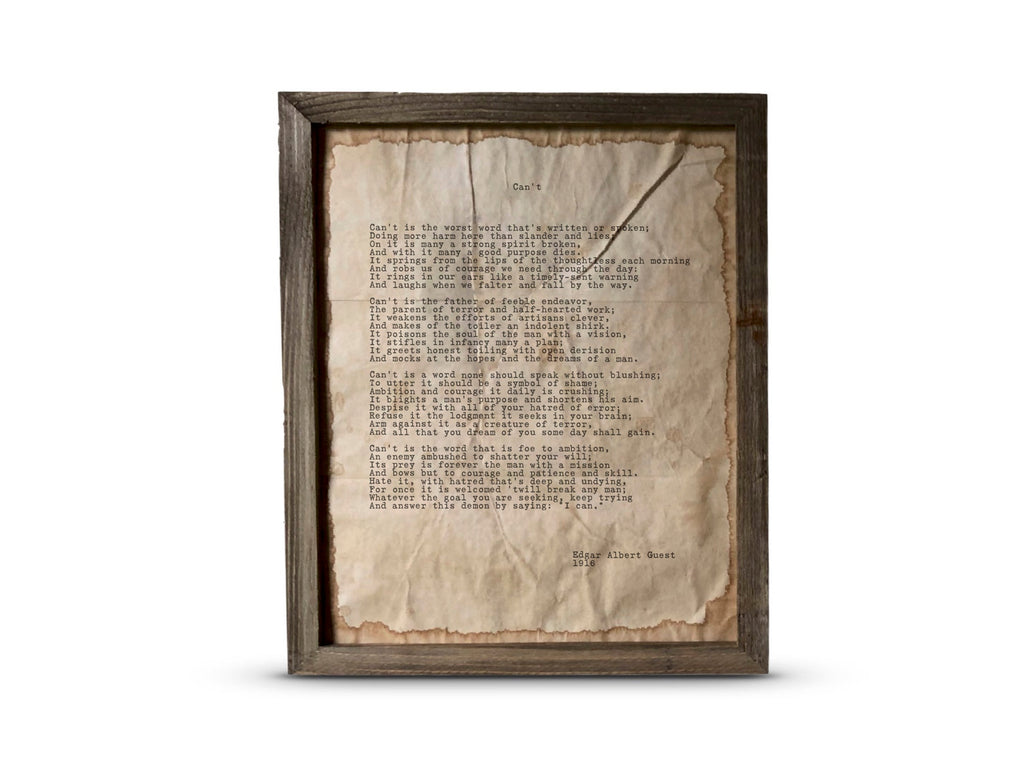 Can't
Can't is the worst word that's written or spoken;
Doing more harm here than slander and lies;
On it is many a strong spirit broken,
And with it many a good purpose dies.
It springs from the lips of the thoughtless each morning
And robs us of courage we need through the day:
It rings in our ears like a timely-sent warning
And laughs when we falter and fall by the way.
Can't is the father of feeble endeavor,
The parent of terror and half-hearted work;
It weakens the efforts of artisans clever,
And makes of the toiler an indolent shirk.
It poisons the soul of the man with a vision,
It stifles in infancy many a plan;
It greets honest toiling with open derision
And mocks at the hopes and the dreams of a man.
Can't is a word none should speak without blushing;
To utter it should be a symbol of shame;
Ambition and courage it daily is crushing;
It blights a man's purpose and shortens his aim.
Despise it with all of your hatred of error;
Refuse it the lodgment it seeks in your brain;
Arm against it as a creature of terror,
And all that you dream of you some day shall gain.
Can't is the word that is foe to ambition,
An enemy ambushed to shatter your will;
Its prey is forever the man with a mission
And bows but to courage and patience and skill.
Hate it, with hatred that's deep and undying,
For once it is welcomed 'twill break any man;
Whatever the goal you are seeking, keep trying
And answer this demon by saying: "I can."
Edgar Albert Guest
1916